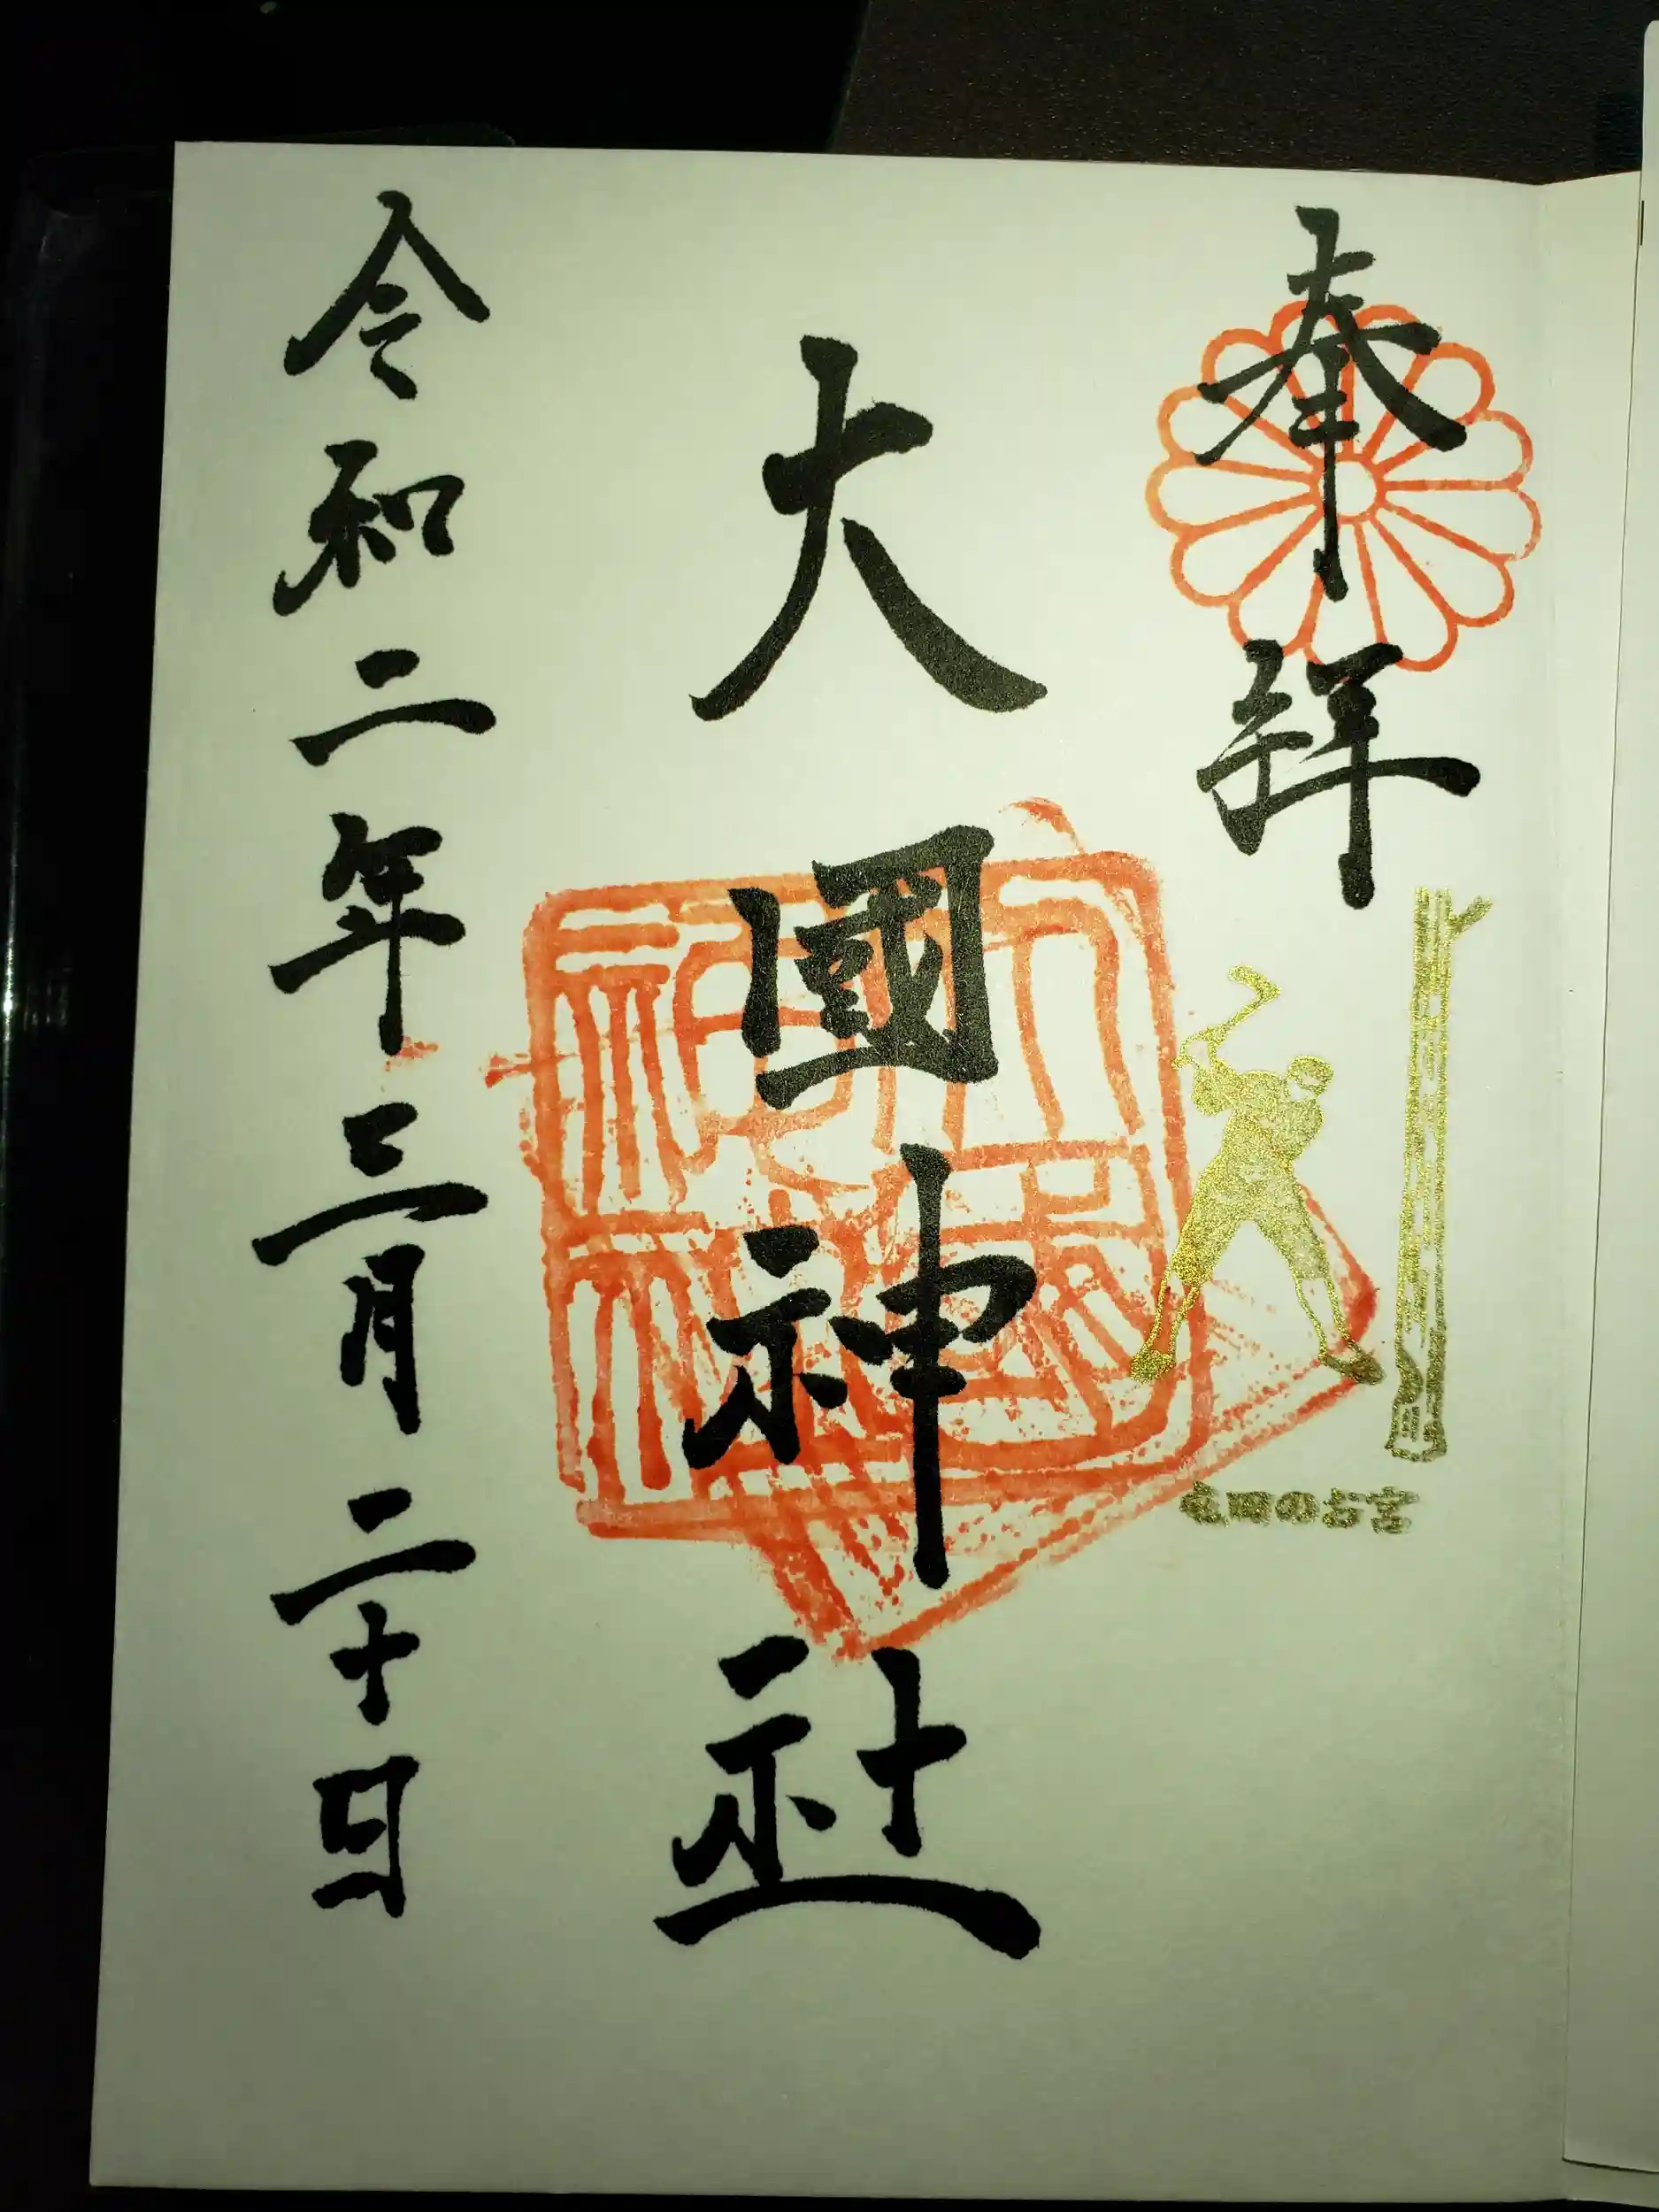 奉拝
屯田のお宮
大國神社
令和二年三月二十日